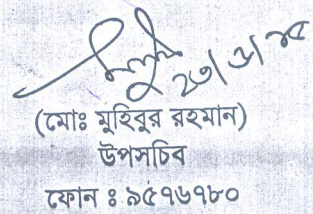 (মোঃ মুহিবুর রহমান)
উপসচিব
ফোন ঃ ৯৫৭৬৭৮০